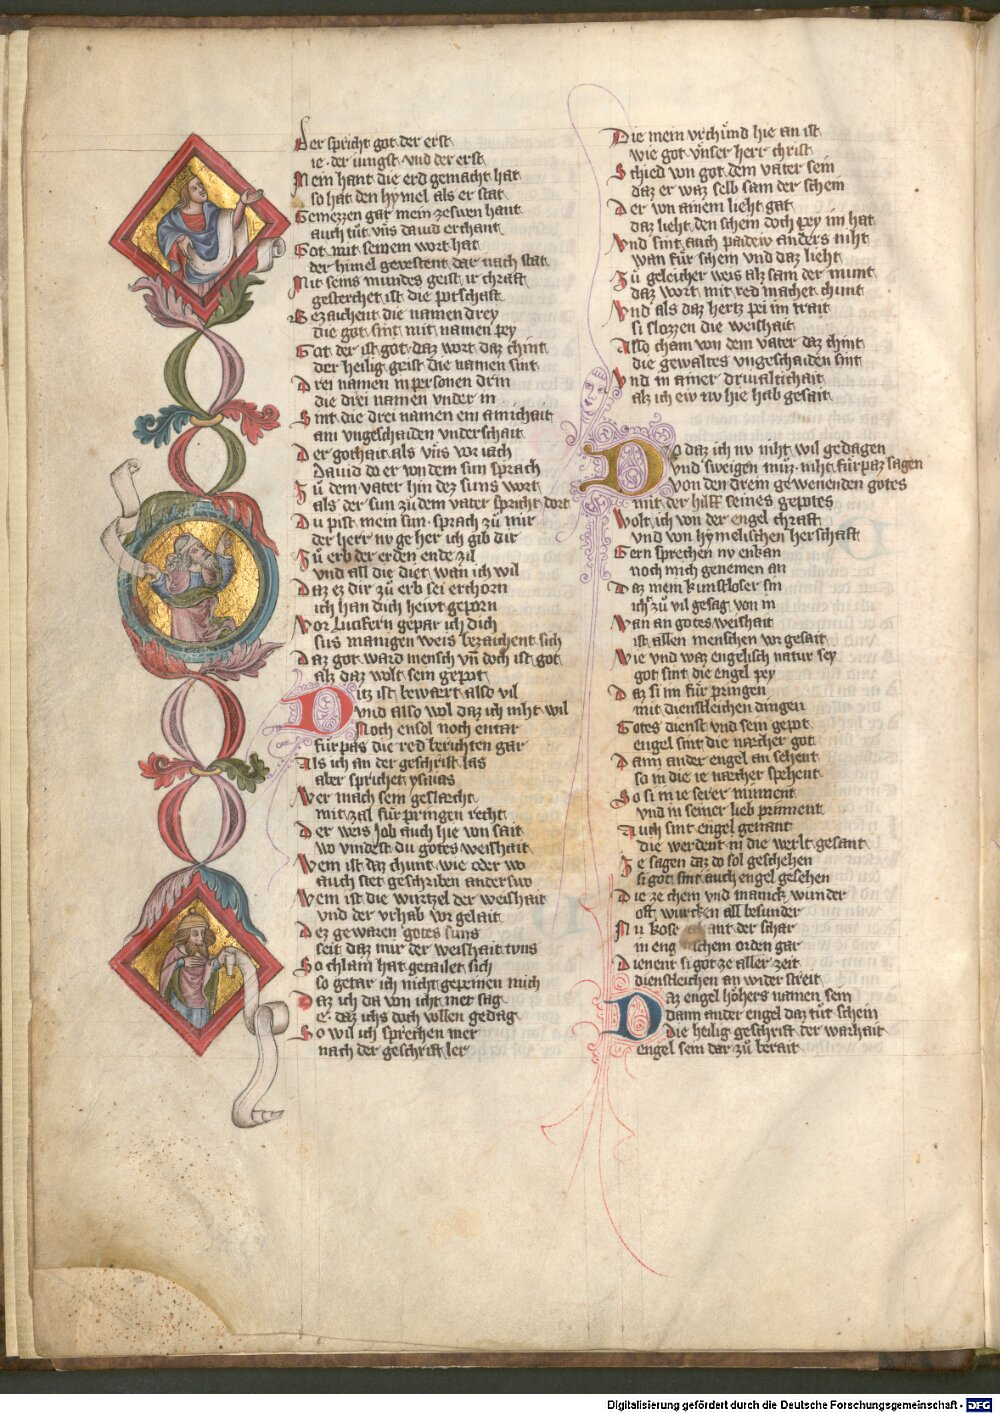 Der spricht got der erst
ie der iungst vnd der erst
Mein hant die erd gemacht hat
so hat den hymel als er stat
Gemezzen gar mein zeswen hant
auch tůt vns dauid erchant
Got mit seinem wort hat
der himel gevestent dar nach stat
Mit seins mundes geist ir chraft
gesterchet ist die potschaft
Bezaichent die namen drey
die got sint mit namen pey
Got der ist got daz wort daz chint
der heilig geist die namen sint
Drei namen in personen drin
die drei namen vnder in
Sint die drei namen ein ainichait
an vngeschaiden vnderschait
Der gothait als vns vor iach
Dauid do er von dem sun sprach
Zů dem vater hin dez suns wort
als der sun zů dem vater spricht dort
Du pist mein sun sprach zů mir
der herr nv ge her ich gib dir
Zů erb der erden ende zil
vnd all die diet wan ich wil
Daz ez dir zů erb sei erchorn
ich han dich hewt geporn
Vor Lucifern gepar ich dich
sus manigen weis bezaichent sich
Daz got ward mensch vn̄ doch ist got
als daz wolt sein gepot
Ditz ist bewaert also vil
vnd also wol daz ich niht wil
Noch ensol noch entar
fürpas die red berichten gar
Als ich an der geschrift las
aber sprichet ysaias
Wer mach sein geslaecht
mit zal für pringen recht
Der weis Job auch hie von sait
wo vindest du gotes weishait
Wem ist daz chunt wie oder wo
auch stet geschriben anderswo
Wem ist die wurtzel der weishait
vnd der vrhab vor gelait
Dez gewaren gotes suns
seit daz mir der weishait runs
So chlain hat getailet sich
so getar ich nicht gepeinen mich
Daz ich da von icht mer sag
e daz ichs doch vollen gedag
So wil ich sprechen mer
nach der geschrift ler
Die mein vrchůnd hie an ist
wie got vnser herr christ
Schied von got dem vater sein
daz er waz selb sam der schein
Der von ainem lieht gat
daz lieht den schein doch pey im hat
Vnd sint auch paidew anders niht
wan für schein vnd daz lieht
Zů geleicher weis alz sam der munt
daz wort mit red machet chunt
Vnd als daz hertz pei im trait
slozzen die weishait
Also cham von dem vater daz chint
die gewaltes vngeschaiden sint
Vnd in ainer driualtichait
alz ich ew hie hab gesait
Do daz ich nv niht wil gedagen
vnd sweigen můz niht fürpaz sagen
von den drein gewenenden gotes
mit der hilff seines gepotes
Wolt ich von der engel chraft
vnd von hymelischen herschaft
Gern sprechen nv enkan
noch mich genemen an
Daz mein kunstloser sin
ich zů vil gesag von in
Wan an gotes weishait
ist allen menschen vor gesait
Wie vnd waz engelisch natur sey
got sint die engel pey
Daz si im für pringen
mit dienstleichen dingen
Gotes dienst vnd sein gepot
engel sint die naecher got
Dann ander engel an sehent
so in die ie naecher spehent
So si in ie serer minnent
vnd in seiner lieb prinnent
Auch sint engel genant
die werdent in die werlt gesant
Ze sagen daz do sol geschehen
si got sint auch engel gesehen
Die zechem vnd manick wunder
oft wurcken all besunder
Nu kose der schar
in eng schem orden gar
Dienent si got ze aller zeit
dienstleichen an wider streit
Daz engel höhers namen sein
dann ander engel daz tůt schein
Die heilig geschrift der warhait
engel sein dar zů berait
Digitalisierung gefördert durch die Deutsche Forschungsgemeinschaft - DFG